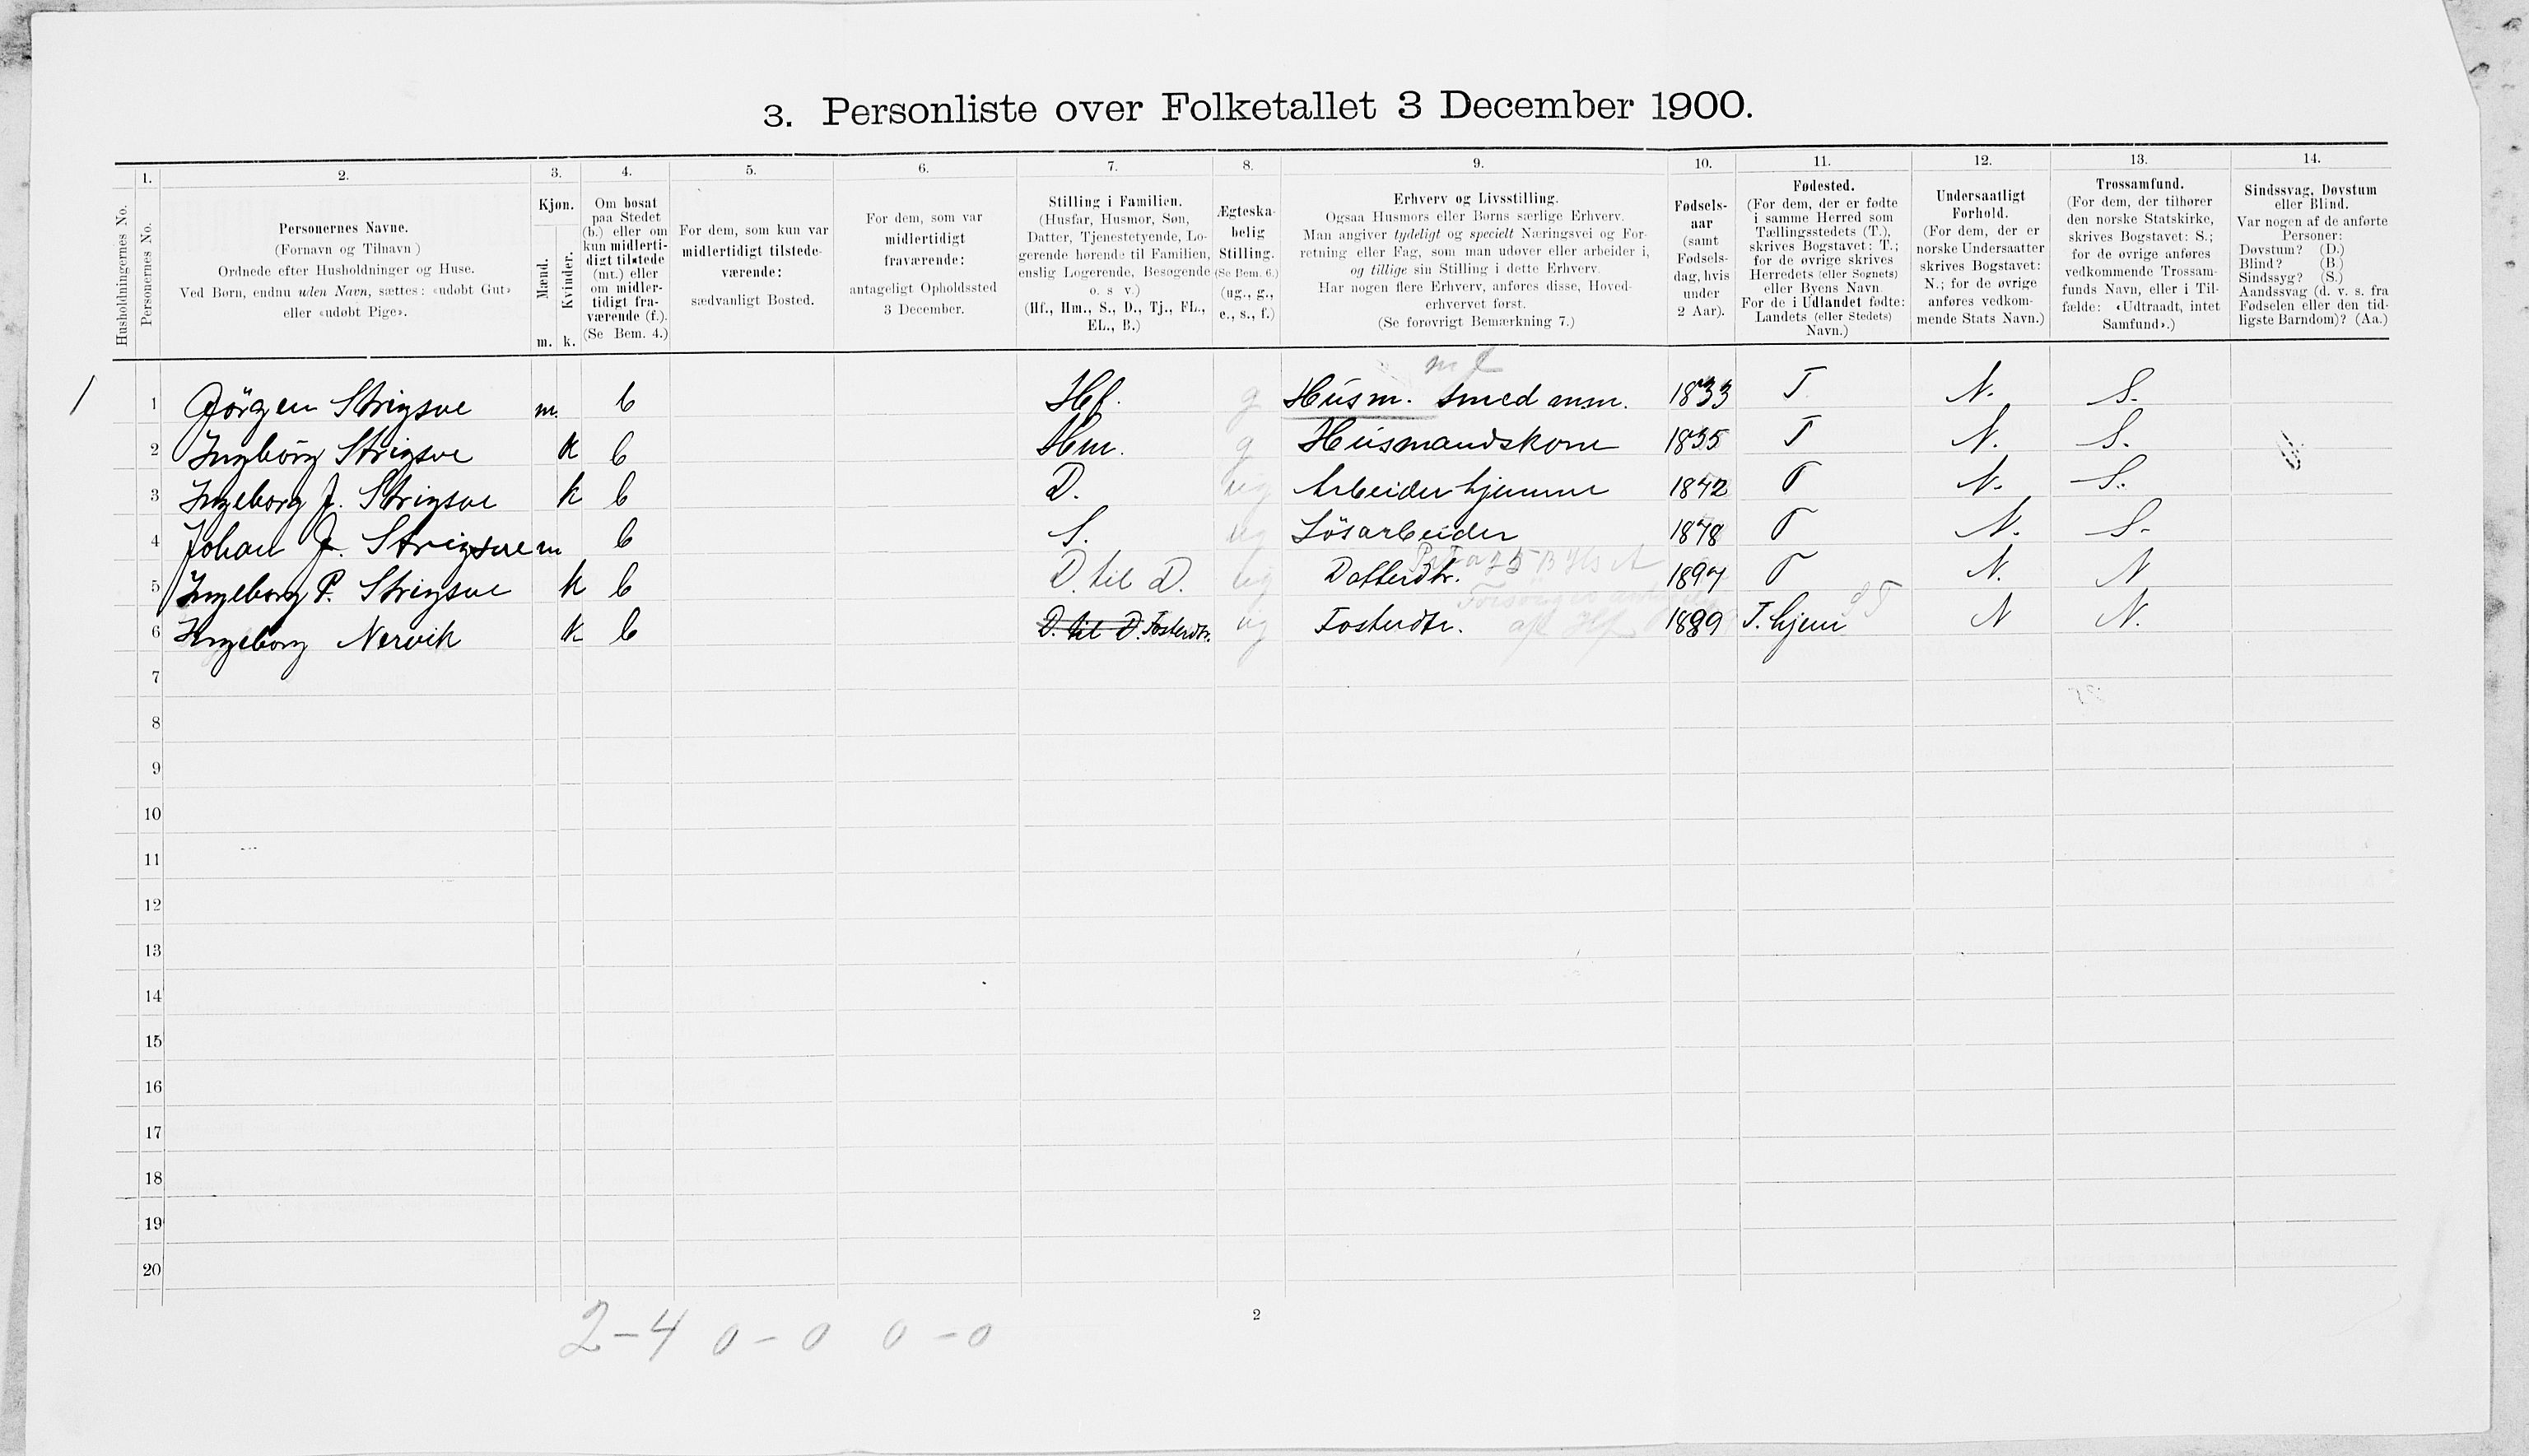 3. Personliste over Folketallet 3 December 1900.
1. 2. 3. 4. 5. 6. 7. 8. 9. 10. 11. 12. 13. 14.
Husholdningernes No.
Personernes No.
Personernes Navne.
(Fornavn og Tilnavn)
Ordnede efter Husholdninger og Huse.
Ved Børn, endnu uden Navn, sættes: «udøbt Gut»
eller «udøbt Pige».
Kjøn.
Mænd.
Kvinder.
m. k.
Om bosat
paa Stedet
(b.) eller om
kun midlerti-
digt tilstede
(mt.) eller
om midler-
tidigt fra-
værende (f.).
(Se Bem. 4.)
For dem, som kun var
midlertidigt tilstede-
værende:
sædvanligt Bosted.
For dem, som var
midlertidigt
fraværende:
antageligt Opholdssted
3 December.
Stilling i Familien.
(Husfar, Husmor, Søn,
Datter, Tjenestetyende, Lo-
gerende hørende til Familien,
enslig Logerende, Besøgende
o. s. v.)
(Hf., Hm., S., D., Tj., FL.,
EL., B.)
Ægteska-
belig
Stilling.
(Se Bem. 6.)
(ug., g.,
e., s., f.)
Erhverv og Livsstilling.
Ogsaa Husmors eller Børns særlige Erhverv.
Man angiver tydeligt og specielt Næringsvei og For-
retning eller Fag, som man udøver eller arbeider i,
og tillige sin Stilling i dette Erhverv.
Har nogen flere Erhverv, anføres disse, Hoved-
erhvervet først.
(Se forøvrigt Bemærkning 7.)
Fødsels-
aar
(samt
Fødsels-
dag, hvis
under
2 Aar).
Fødested.
(For dem, der er fødte
i samme Herred som
Tællingsstedets (T.),
skrives Bogstavet: T.;
for de øvrige skrives
Herredets (eller Sognets)
eller Byens Navn.
For de i Udlandet fødte:
Landets (eller Stedets)
Navn.)
Undersaatligt
Forhold.
(For dem, der er
norske Undersaatter
skrives Bogstavet:
N.; for de øvrige
anføres vedkom-
mende Stats Navn.)
Trossamfund.
(For dem, der tilhører
den norske Statskirke,
skrives Bogstavet: S.;
for de øvrige anføres
vedkommende Trossam-
funds Navn, eller i Til-
fælde: «Udtraadt, intet
Samfund».)
Sindssvag, Døvstum
eller Blind.
Var nogen af de anførte
Personer:
Døvstum? (D.)
Blind? (B.)
Sindssyg? (S.)
Aandssvag (d. v. s. fra
Fødselen eller den tid-
ligste Barndom)? (Aa.)
1 1 Jörgen Strigsve m. b Hf. g Husm. smed 1833 T N. S.
2 Ingbörg Strigsve k b Hm. g Husmandskone 1835 T N. S.
3 Ingeborg J. Strigsve k b D. ug Arbeider hjemme 1872 T N. S.
4 Johan J. Strigsve m b S. ug Lösarbeider 1878 T N. S.
5 Ingeborg P. Strigsve k b D. til D. ug Datterdtr. 1897 T N. N
6 Ingeborg Nervik k b D. til D. Fosterdtr. ug Fosterdtr. af Hf 1889 T. hjem N N.
7
8
9
10
11
12
13
14
15
16
17
18
19
20
2
2-4 0-0 0-0